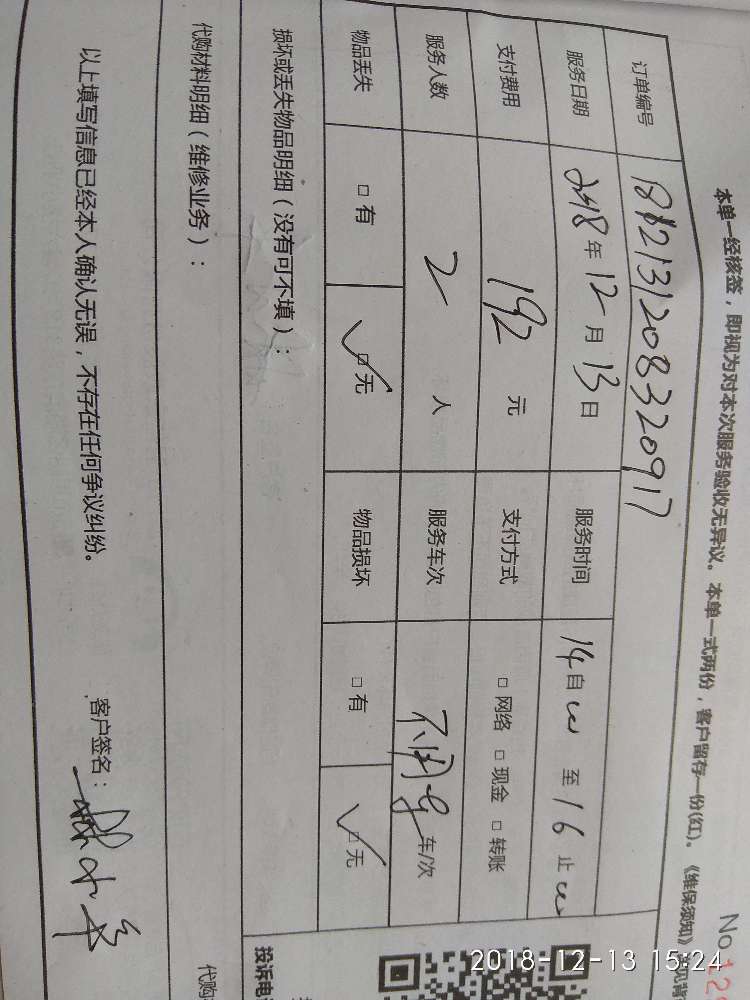 本单一经核签，即视为对本次服务验收无异议。本单一式两份，客户留存一份(红)。《维保须知》
No.12
订单编号 1812131208320917
服务日期 2018年12月13日 服务时间 14自00至16止00
支付费用 192元 支付方式 □网络 □现金 □转账
服务人数 2人 服务车次 不用 车/次
物品丢失 □有 □无 物品损坏 □有 □无
损坏或丢失物品明细（没有可不填）：
代购材料明细（维修业务）： 代购
以上填写信息已经本人确认无误，不存在任何争议纠纷。 客户签名：
投诉电
2018-12-13 15:24